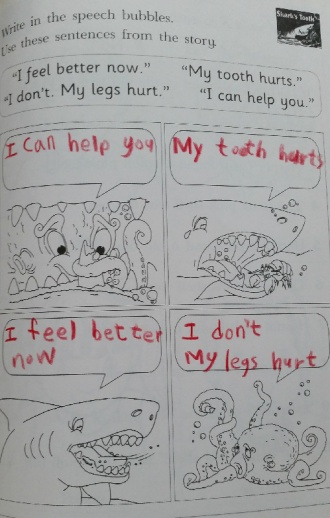 Write in the speech bubbles.
Use these sentences from the story.
Shark's Tooth
"I feel better now."
"My tooth hurts."
"I don't. My legs hurt."
"I can help you."
I can help you
My tooth hurts
I feel better
now
I don't
My legs hurt